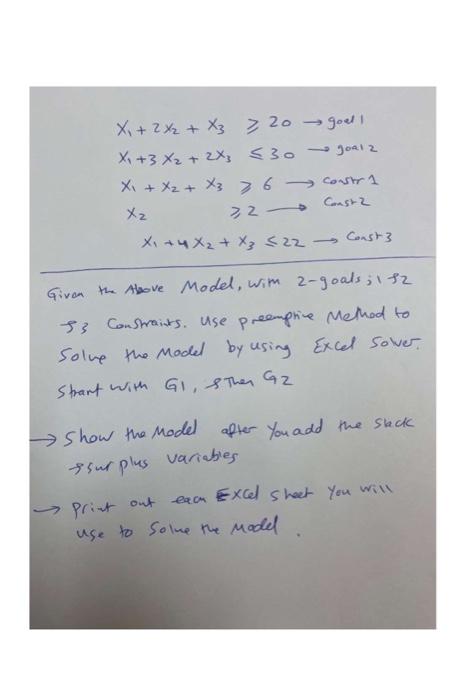 X₁ + 2X₂ + X₃ ≥ 20 → goal 1
X₁ + 3X₂ + 2X₃ ≤ 30 → goal 2
X₁ + X₂ + X₃ ≥ 6 → constr 1
X₂ ≥ 2 → Const 2
X₁ + 4X₂ + X₃ ≤ 22 → Const 3
Given the Above Model, with 2-goals; 1 & 2
& 3 Constraints. Use preemptive Method to
Solve the Model by using Excel Solver.
Start with G1, & Then G2
→ Show the Model after You add the slack
& surplus variables
→ Print out each Excel sheet You will
use to Solve the Model.